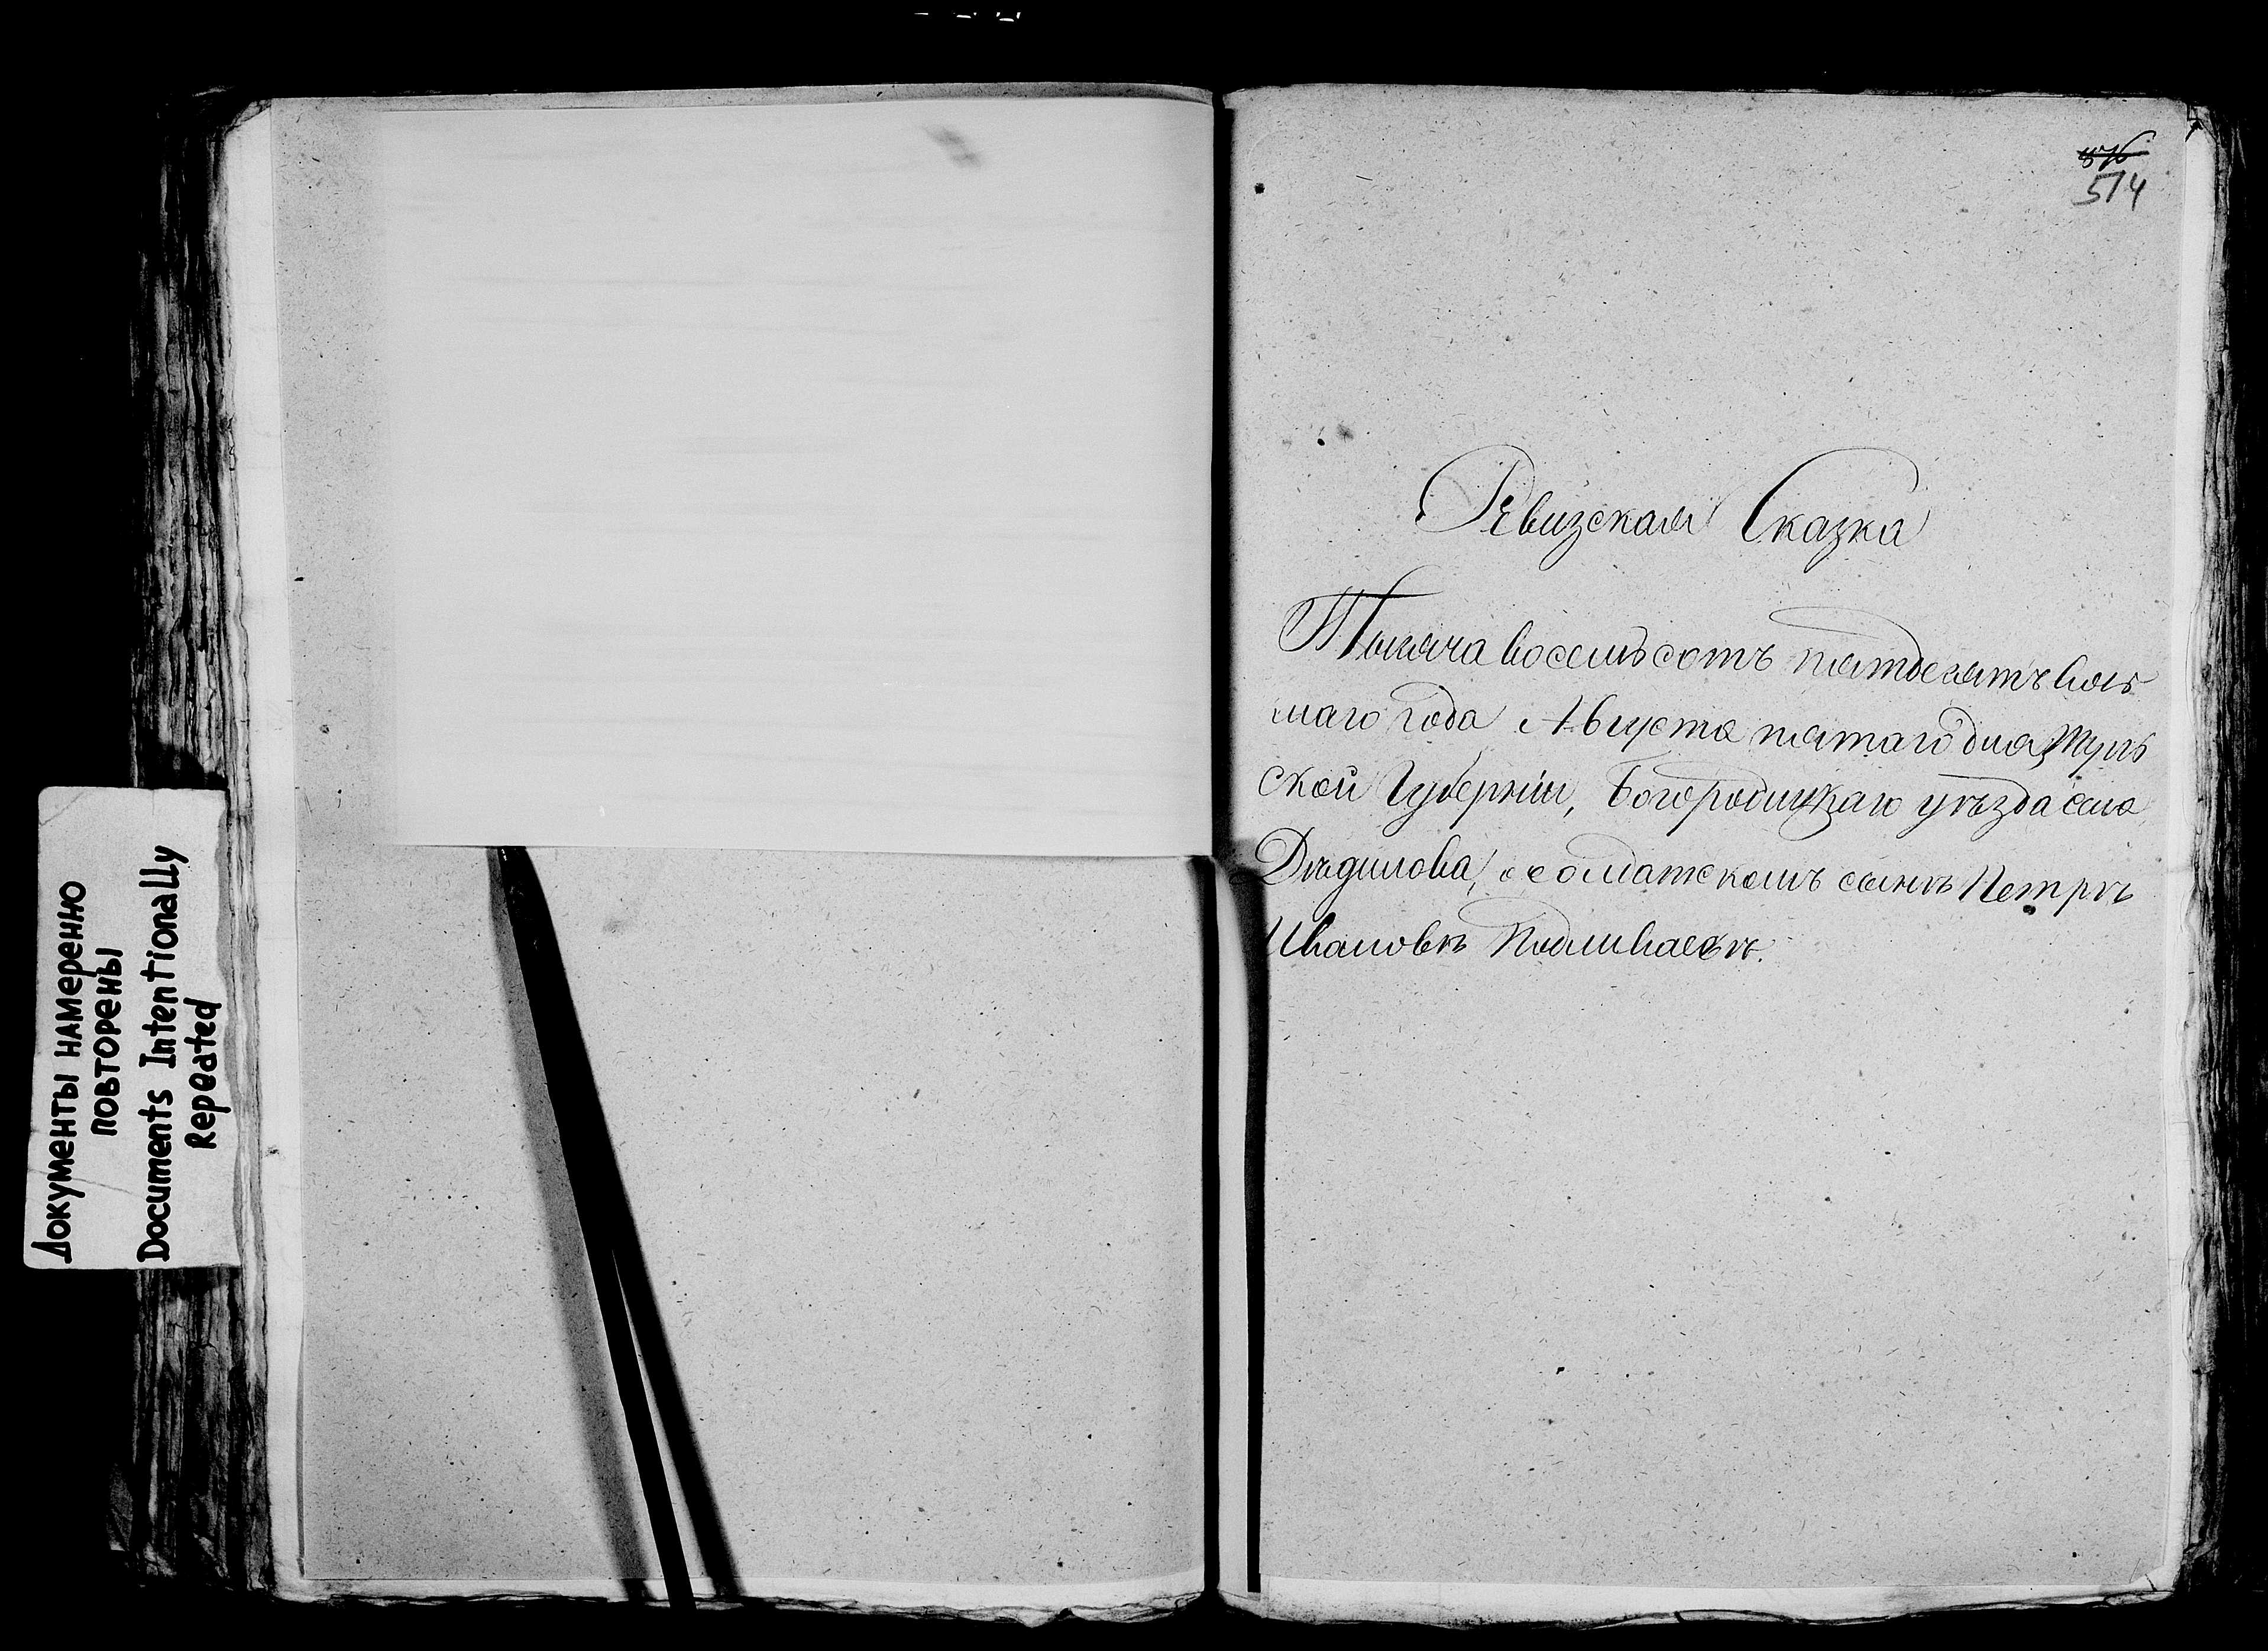 Документы намеренно
повторены
Documents Intentionally
Repeated
514
Ревизская Сказка
Тысяча восемьсотъ пятдесятъ вось
маго года Августа пятаго дня, Туль
ской Губерніи, Богородицкаго уѣзда села
Дѣдилова, о солдатскомъ сынѣ Петрѣ
Ивановѣ Подшиваевѣ.